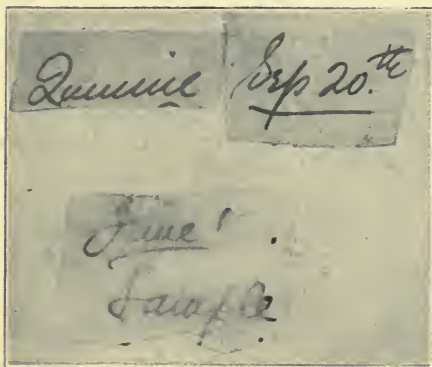 Quinine Sep 20.th
Sample